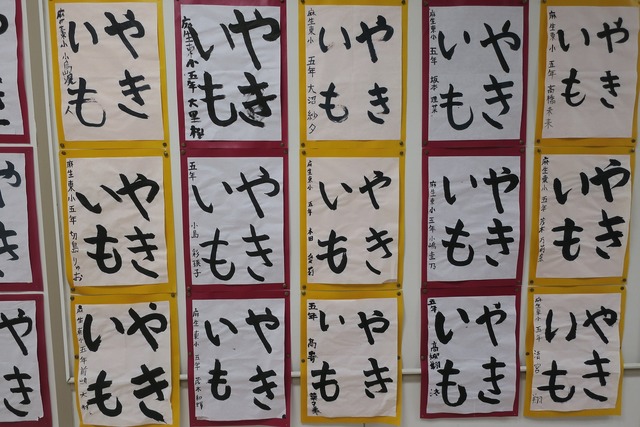 やき
いも
麻生東小 五年
やき
いも
麻生東小 五年 大里
やき
いも
麻生東小 五年 大沼 紗夕
やき
いも
麻生東小 五年 坂本
やき
いも
麻生東小 五年 高橋 未来
や
き
やき
いも
麻生東小 五年
やき
いも
五年 小島
やき
いも
麻生東小 五年 本田
やき
いも
麻生東小 五年 小嶋
やき
いも
麻生東小 五年
や
き
やき
いも
麻生東小 五年
やき
いも
麻生東小 五年 茂木 和輝
やき
いも
五年 高寄
やき
いも
五年 高城
やき
いも
麻生東小 五年